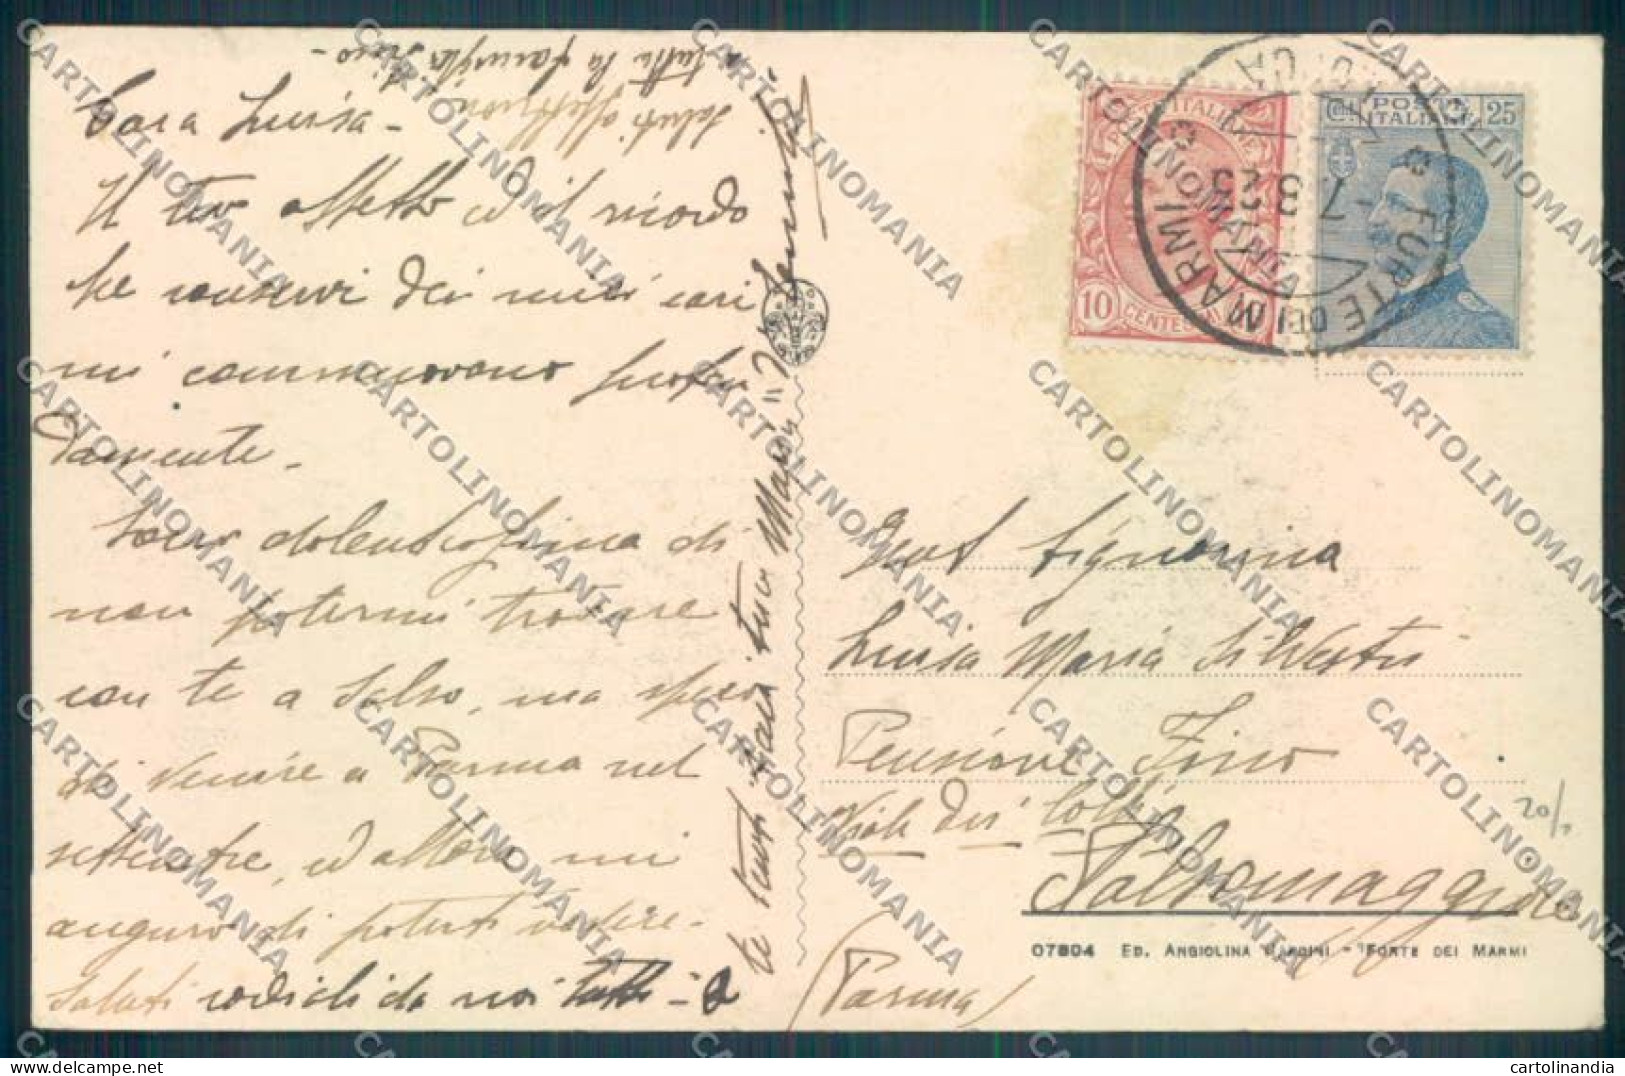 Cara Luisa -
Il tuo affetto ed il ricordo
che conservi dei miei cari
mi commuovono profon
damente -
Sono dolentissima di
non potermi trovare
con te a Salso, ma spero
di venire a Parma nel
settembre, ed allora mi
auguro di poterti vedere -
Saluti cordiali da noi tutti - e
te tanti baci tua
Saluti affettuosi
a tutta la famiglia
Gent Signorina
Luisa Maria Silvestri
Pensione Fino
Viale dei Colli
Salsomaggiore
(Parma)
07804 ED. ANGIOLINA NARDINI - FORTE DEI MARMI
POSTE ITALIANE
10 CENTESIMI
Cent. POSTE ITALIANE 25
FORTE DEI MARMI
7-8 25
LUCCA
20/
CARTOLINOMANIA
cartolinandia